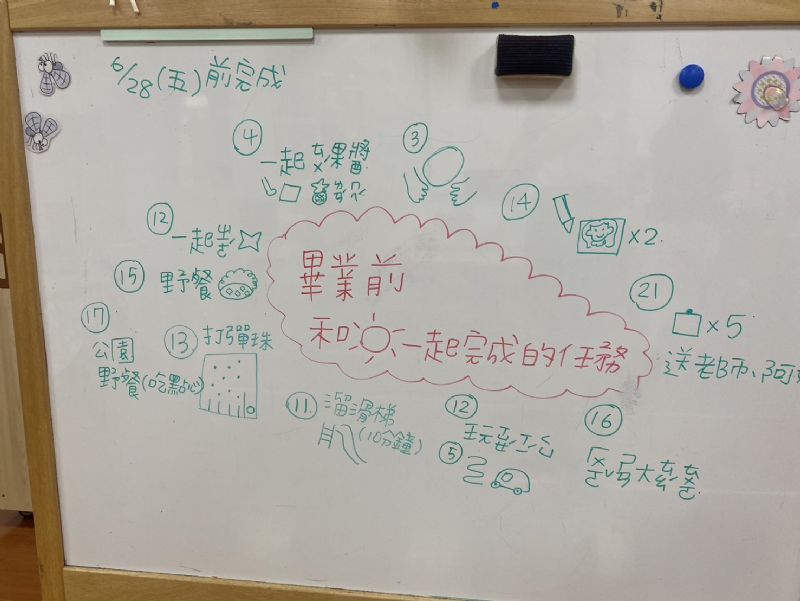 6/28(五)前完成
④
一起ㄠˊ果醬
③
⑭
x2
⑫
一起
⑮
野餐
畢業前
和 一起完成的任務
㉑
x5
送老師、阿
⑰
公園
野餐(吃點心)
⑬
打彈珠
⑪
溜滑梯
(10分鐘)
⑫
玩
⑤
⑯
大